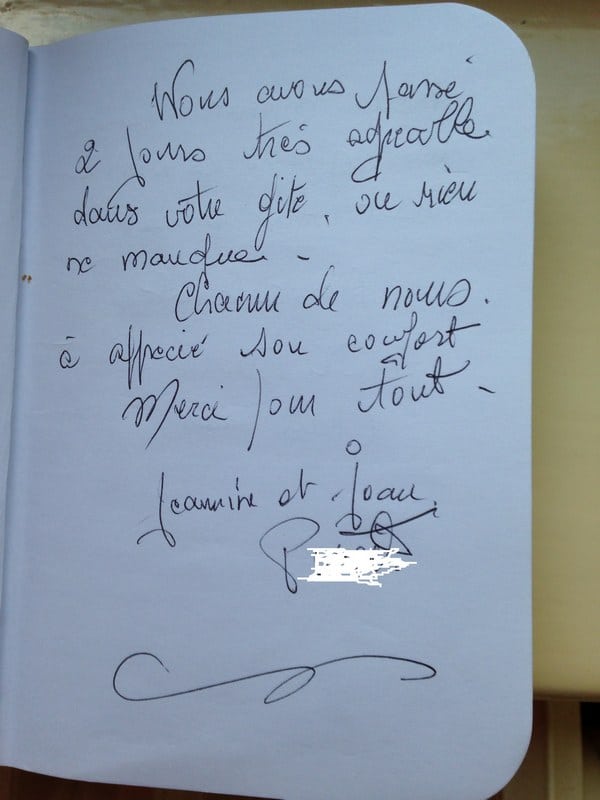 Nous avons passé
2 jours très agréable
dans votre gîte, ou rien
ne manque.
Chacun de nous.
à apprecié son confort
Merci pour tout.
Jeannine et Jean.